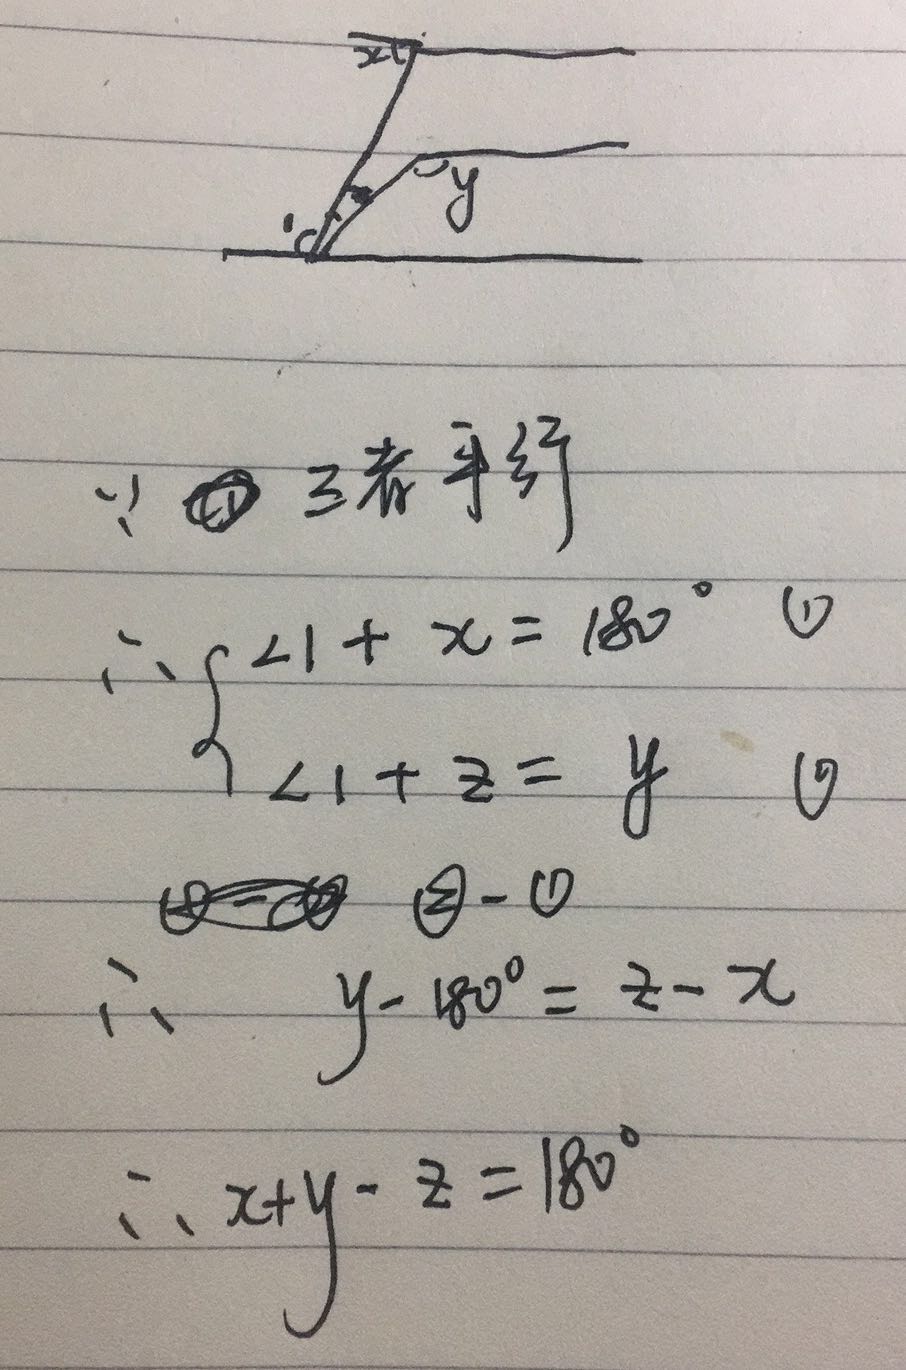 x
y
1
∵ 三者平行
∴ { ∠1 + x = 180° ①
∠1 + z = y ②
② - ①
∴ y - 180° = z - x
∴ x + y - z = 180°